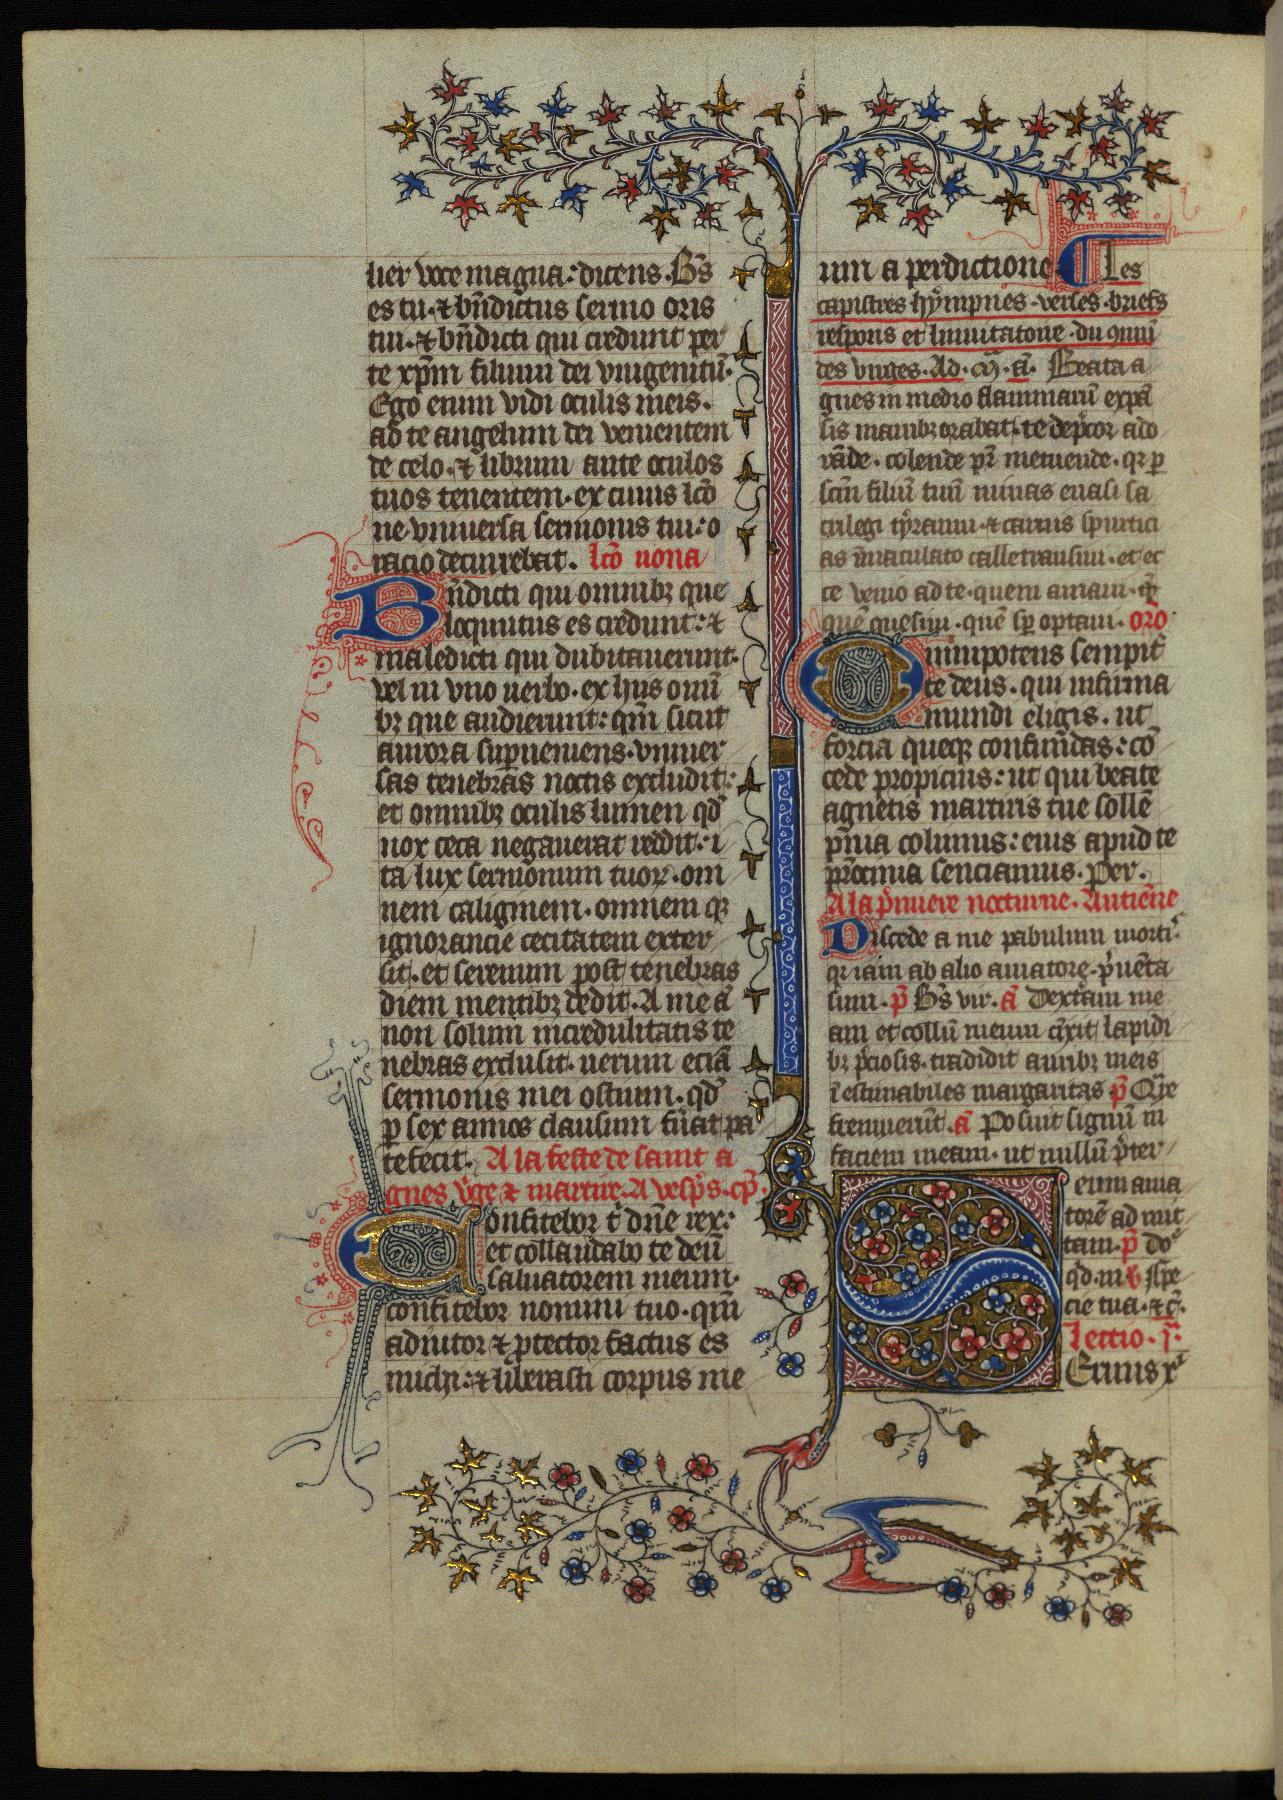 lier voce magna: dicens. Bn̄s
es tu. ⁊ bn̄dictus sermo oris
tui. ⁊ bn̄dicti qui credunt per
te xp̄m filium dei vnigenitū.
Ego enim vidi oculis meis.
ad te angelum dei venientem
de celo. ⁊ librum ante oculos
tuos tenentem. ex cuius lctō
ne vniuersa sermonis tui: o
racio decurrebat. lcō nona
Bn̄dicti qui omnibꝫ que
loquutus es credunt: ⁊
maledicti qui dubitauerunt.
vel in vno uerbo. ex hijs omī
bꝫ que audierunt: qm̄ sicut
aurora supueniens. vniuer
sas tenebras noctis excludit:
et omnibꝫ oculis lumen qd̄
nox ceca negauerat reddit: i
ta lux sermonum tuoꝝ. om
nem caliginem. omnem qꝫ
ignorancie cecitatem exter
sit. et serenum post tenebras
diem mentibꝫ dedit. A me āt
non solum incredulitatis te
nebras exclusit. uerum eciā
sermonis mei ostium. qd̄
ꝑ sex annos clausum fūat pa
tefecit. A la feste de saint a
gnes v̾ge ⁊ martire. A vesp̄s. cp̄.
Confitebor t̾ dn̄e rex:
et collaudabo te deū
saluatorem meum.
confitebor nomini tuo. qm̄
adiutor ⁊ ꝓtector factus es
michi: ⁊ liberasti corpus me
um a perdictione. Les
capistres hympnes. verses. briefs
respons et Inuitatorie. du 9mū
des virges. Ad. m̄. ā. Beata a
gnes in medio flammarū expā
sis manibꝫ orabat. te dep̄cor ado
rāde. colende pr̄ metuende. qr ꝑ
scm̄ filiū tuū minas euasi sa
crilegi tyranni. ⁊ carnis spurtici
as īmaculato calle transiui. et ec
ce venio ad te. quem amaui. q̄
quē quesiui. quē sꝑ optaui. orō
Omnipotens sempit̾
te deus. qui infirma
mundi eligis. ut
forcia queqꝫ confundas: cō
cede propicius: ut qui beate
agnetis martiris tue sollē
pnia colimus: eius apud te
pr̄ocinia senciamus. Per.
A la p̾miere nocturne. Antiēne
Discede a me pabulum mortis
qr iam ab alio amatore. p̾uēta
sum. p̄ Bn̄s vir. ā Dextram me
am et collū meum c̄xit lapidi
bꝫ p̄ciosis. tradidit auribꝫ meis
īestimabiles margaritas p̄ Qre
fremuerūt. ā Posuit signū in
faciem meam. ut nullū p̾ter
eum ama
torē ad mit
tam. p̄ Do͛
qd. m v̄ Spe
cie tua. ⁊ c̄.
lectio. i͛.
Seruus xi